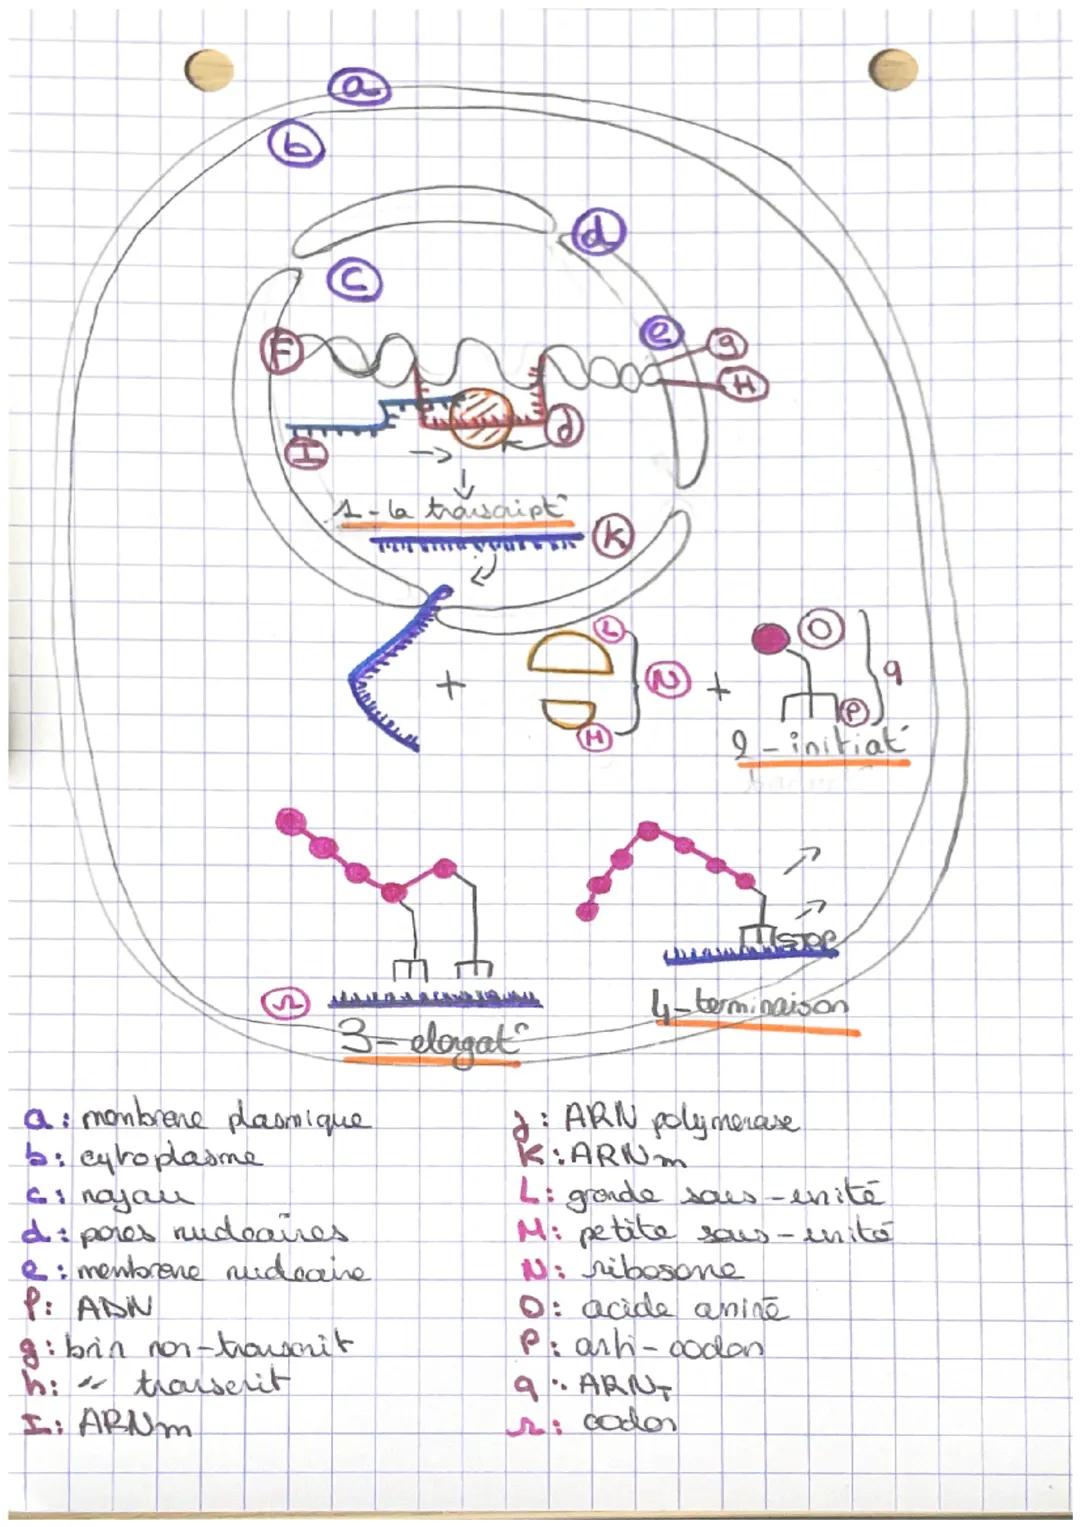 a
b
d
c
e
g
F
H
J
I
1 - la transcript°
K
L
N
O
q
+
+
P
M
2 - initiat°
STOP
r
4 - terminaison
3 - elongat°
a : membrane plasmique
b : cytoplasme
c : noyau
d : pores nucléaires
e : membrane nucléaire
f : ADN
g : brin non-transcrit
h : " transcrit
I : ARNm
j : ARN polymerase
K : ARNm
L : grande sous-unité
M : petite sous-unité
N : ribosome
O : acide aminé
P : anti-codon
q : ARNT
r : codon